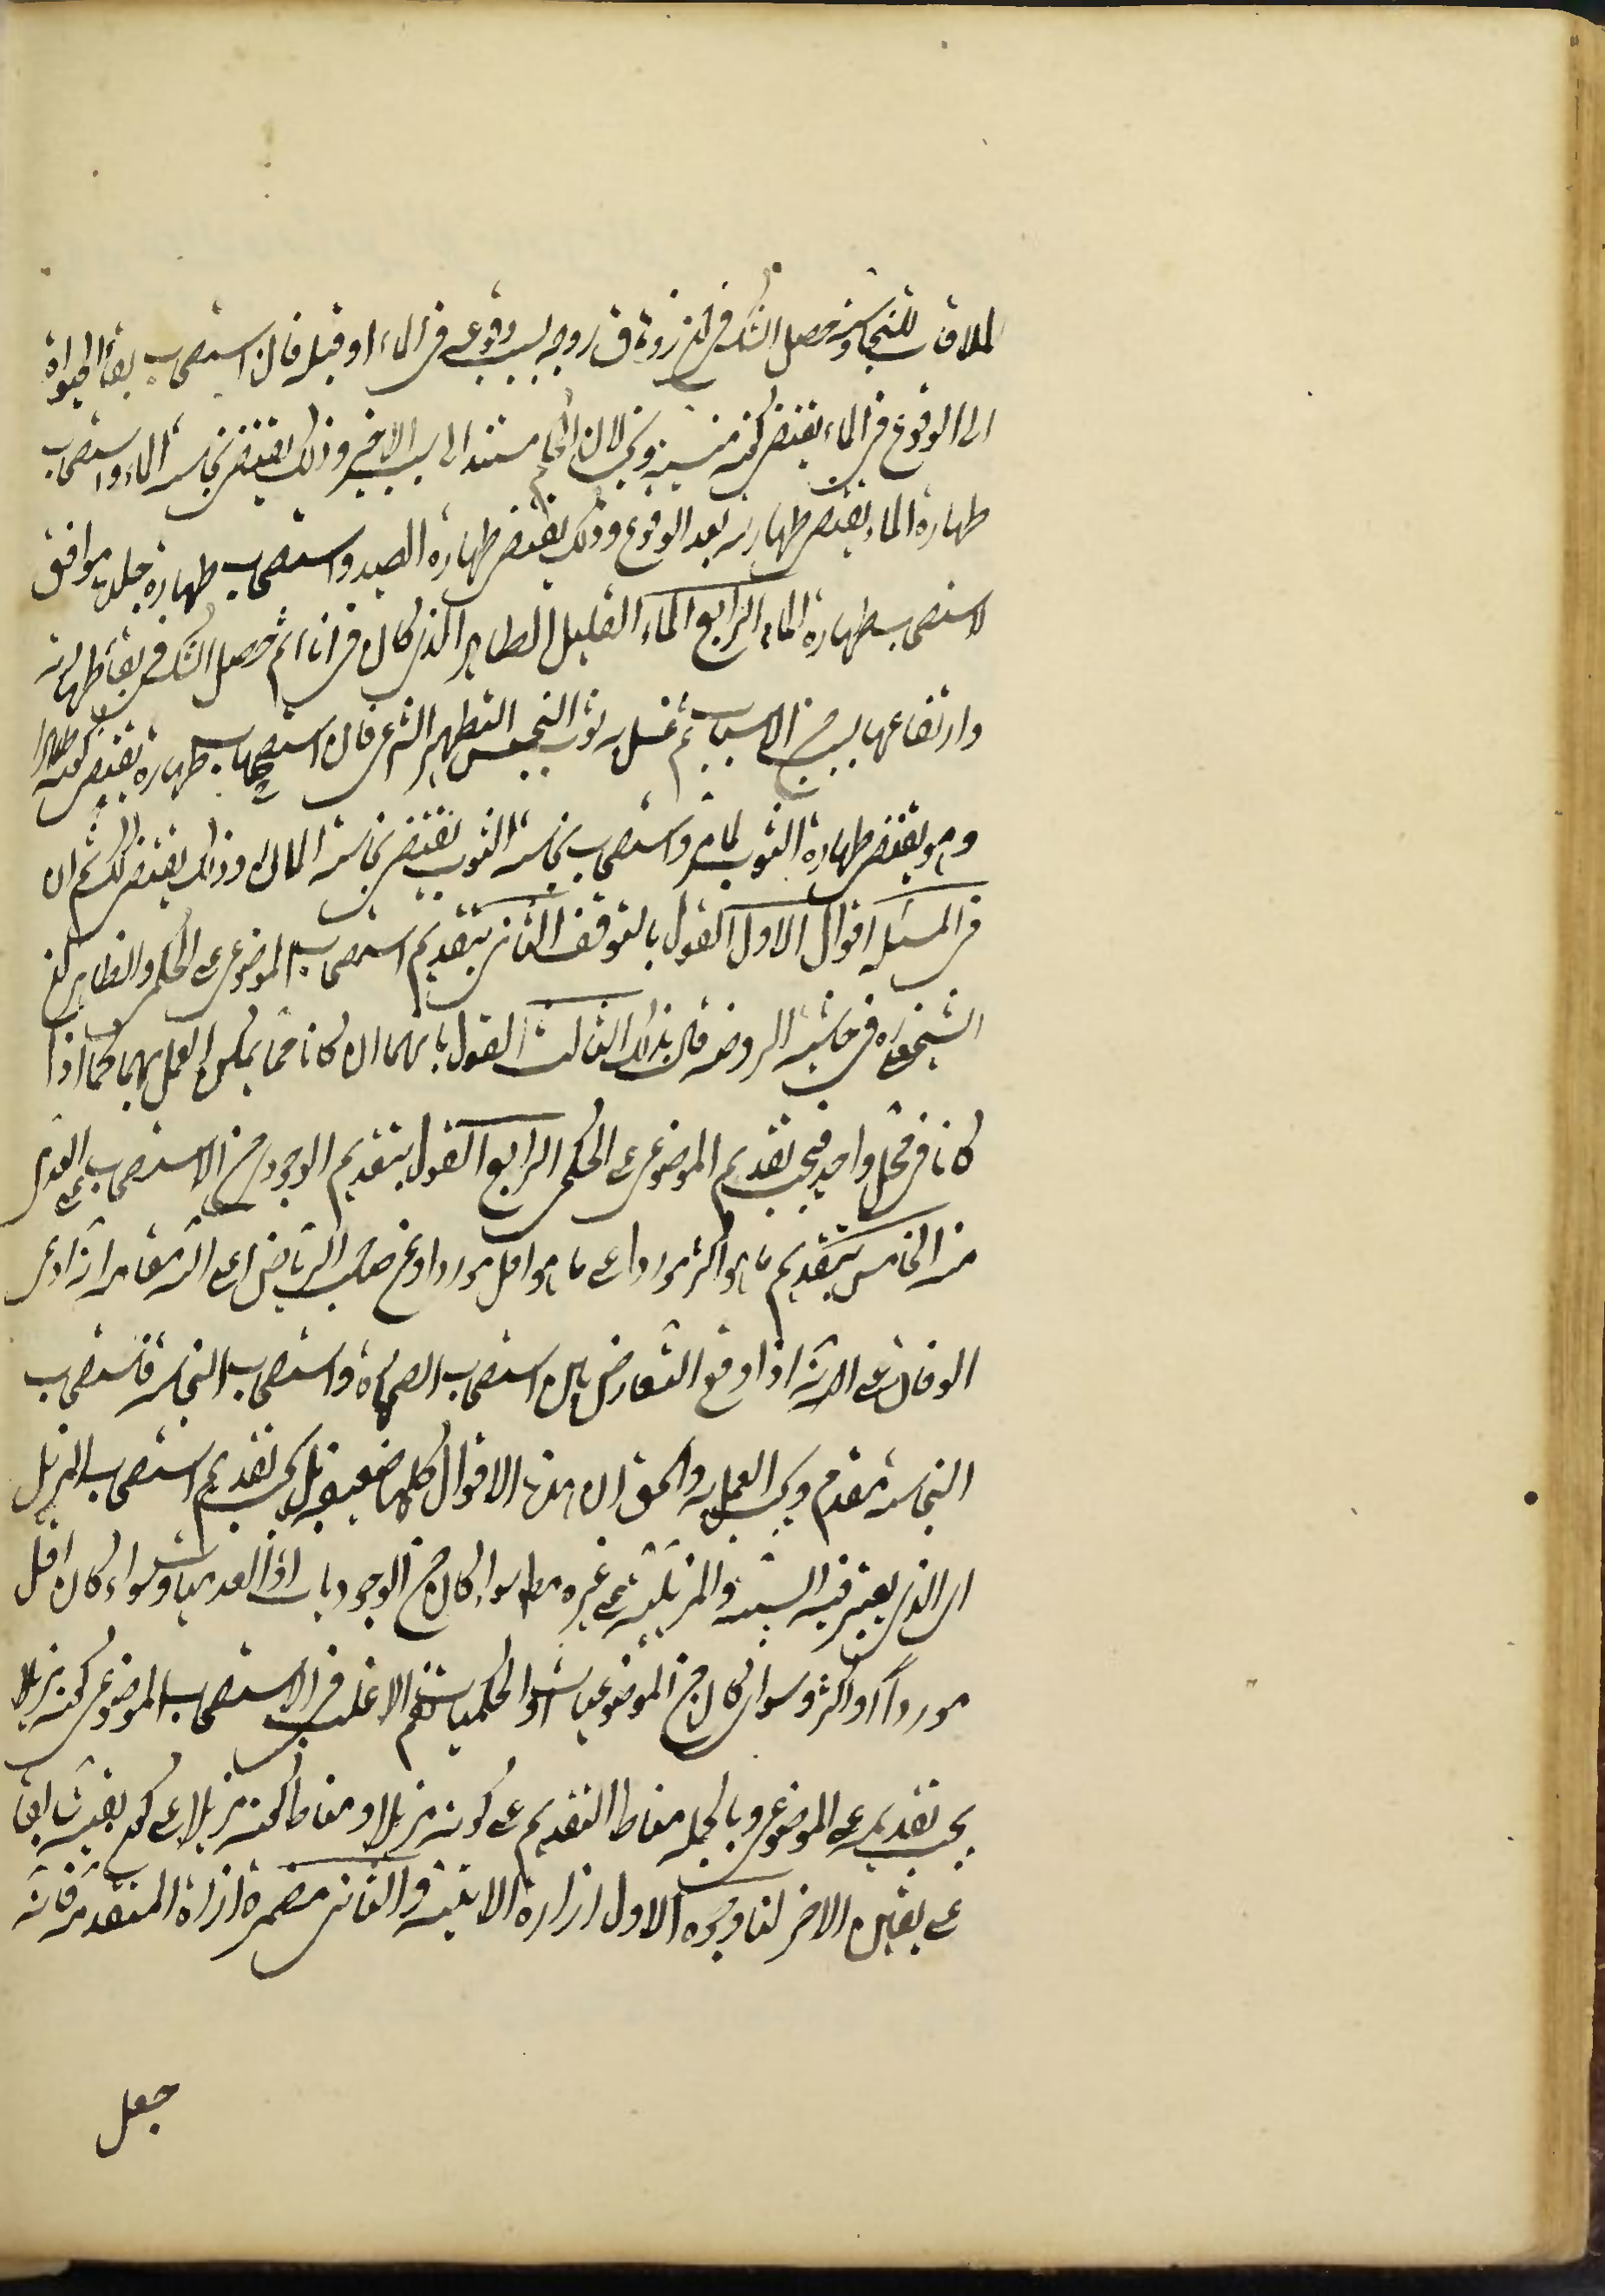 الملاقات للنجاسة وحصل الشك في ان زهوق روحه بسبب وقوعه في الماء او قبله فان استصحاب بقاء الحيوة
الى الوقوع في الماء يقتضي كونه ميتة ونجسا لان الحكم مستند الى السبب الاخير وذلك يقتضي نجاسة الماء واستصحاب
طهارة الماء يقتضي طهارته بعد الوقوع وذلك يقتضي طهارة الصيد واستصحاب طهارة جلده موافق
لاستصحاب طهارة الماء الرابع الماء القليل الطاهر الذي كان في اناء ثم حصل الشك في بقاء طهارته
وارتفاعها بسبب من الاسباب ثم غسل به ثوب النجس التطهير الشرعي فان استصحاب طهارة يقتضي كونه طاهرا
وهو يقتضي طهارة الثوب لما مر واستصحاب نجاسة الثوب يقتضي نجاسة الماء وذلك يقتضي ثم ان
في المسئلة اقوال الاول القول بالتوقف الثاني بتقديم استصحاب الموضوعي على الحكمي والظاهر ان
الشيخ ره في حاشية الروضة قال بذلك الثالث القول بانهما ان كانا مما يمكن العمل بهما كما اذا
كانا في محل واحد فيجب تقديم الموضوعي على الحكمي الرابع القول بتقديم الوجودي من الاستصحاب على العدمي
منه الخامس بتقديم ما هو اكثر موردا على ما هو اقل موردا وعن صاحب الرياض اعلى الله مقامه انه ادعى
الوفاق على انه اذا وقع التعارض بين استصحاب الطهارة واستصحاب النجاسة فاستصحاب
النجاسة مقدم ويجب العمل به والحق ان هذه الاقوال كلها ضعيفة بل يجب تقديم استصحاب المزيل
اي الذي يعتبر فيه السببية والمزيلية على غيره مط سواء كان من الوجوديات او العدميات وسواء كان اقل
موردا او اكثر وسواء كان من الموضوعيات او الحكميات نعم الاغلب في الاستصحاب الموضوعي كونه مزيلا
يجب تقديمه على الموضوعي وبالجملة مناط التقديم على كونه مزيلا ومناط كونه مزيلا على كون يقينه سابقا
على يقين الاخر لنا وجوه الاول ان زرارة الاتية والثاني مضمرة زرارة المتقدمة فانه
جعل